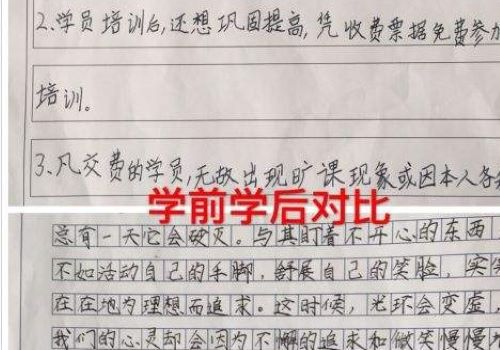 2.学员培训后,还想巩固提高,凭收费票据免费参加
培训。
3.凡交费的学员,无故出现旷课现象或因本人各
学前学后对比
总有一天它会破灭。与其盯着不开心的东西
不如活动自己的手脚,舒展自己的笑脸,实
在在地为理想而追求。这时候,光环会变虚
我们的心灵却会因为不懈的追求和微笑慢慢